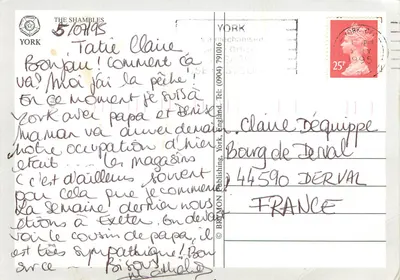 THE SHAMBLES
YORK
5/07/95
Tatie Claire
Bonjour! Comment ça
va? Moi j'ai la pêche!
En ce moment je suis à
York avec papa et Denise
maman va arriver demain
notre occupation d'hier
était .... les magasins
(c'est d'ailleurs souvent
pour cela que je commence
La semaine dernier nous
étions à Exeter. On devait
voir le cousin de papa, il
est très sympathique! Bon
sur ce
Bisous
© BREMON Publishing, York, England. Tel: (0904) 791016
YORK
25P
Claire Déquippe
Bourg de Derval
44590 DERVAL
FRANCE